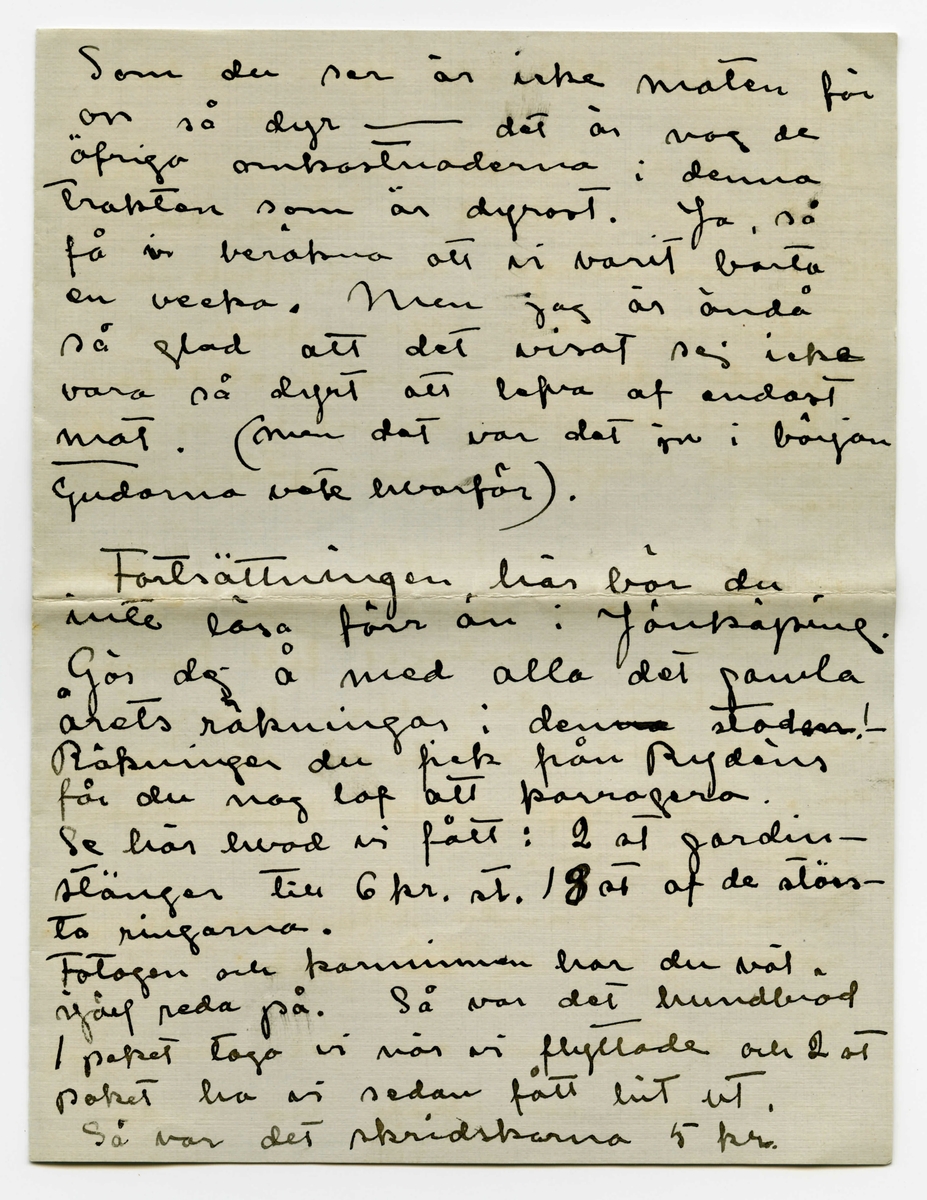 Som du ser är icke maten för
oss så dyr — det är nog de
öfriga omkostnaderna i denna
trakten som är dyrast. Ja, så
få vi beräkna att vi varit borta
en vecka. Men jag är ändå
så glad att det visat sej icke
vara så dyrt att lefva af endast
mat. (men det var det ju i början
Gudarna vete hvarför).
Fortsättningen här bör du
inte läsa förr än i Jönköping.
Gör dej å med alla det gamla
årets räkningar i denna staden!—
Räkningen du fick från Rydéns
får du nog lof att korrigera.
Se här hvad vi fått: 2 st gardin-
stänger till 6 kr. st. 18 st af de störs-
ta ringarna.
Fotogen och kaminen har du väl
själf reda på. Så var det hundbröd
1 paket togo vi när vi flyttade och 2 st
paket ha vi sedan fått hit ut.
Så var det skridskorna 5 kr.